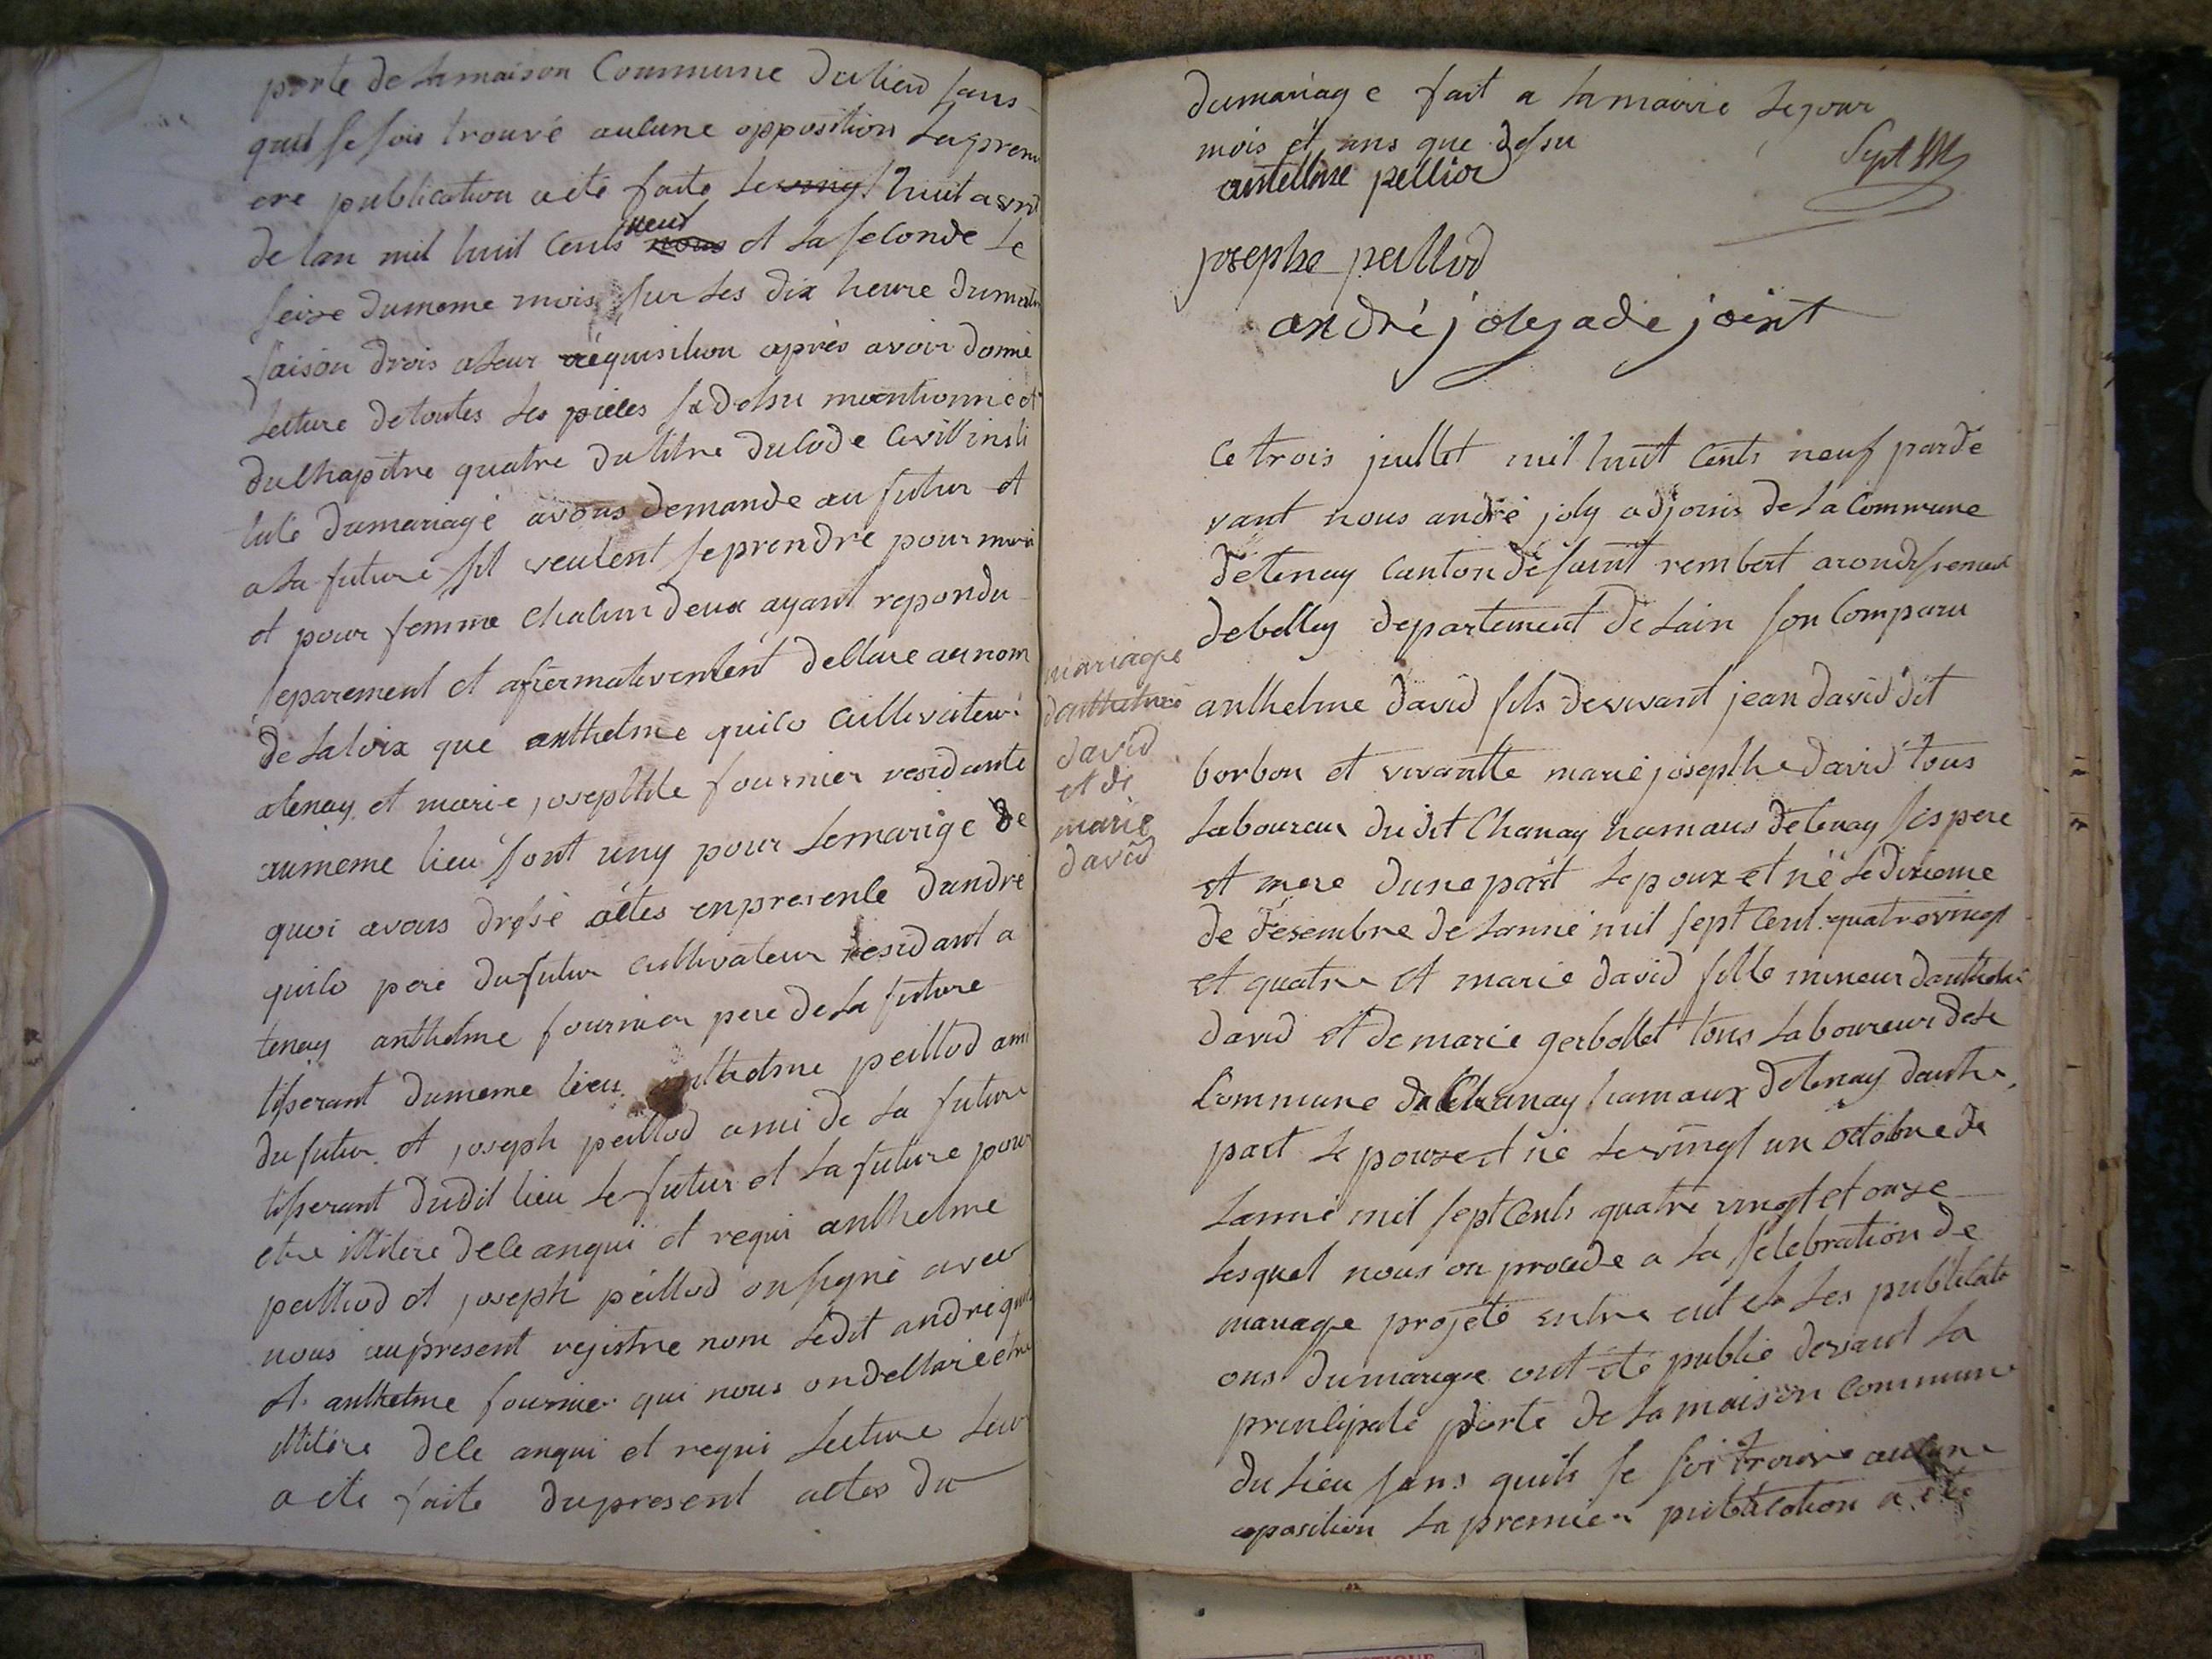 porte de la maison Commune du lieu sans
quil se sois trouvé aucune opposition la premi
ere publication a été faite le vingt huit avril
de lan mil huit Cents neuf nous et la seconde le
seize du meme mois sur les dix heure du matin
faison drois a leur réquisition après avoir donné
lecture de toutes les pieces si desu mentionné et
du Chapitre quatre du titre du Code Civill insti
tulé du mariage avons demande au futur et
a la future sil veulent se prendre pour mari
et pour femme Chacun deux ayant repondu
separement et afirmativement declare au nom
de la loix que anthelme quilo cultivateur
a tenay et marie josephte fournier residante
au meme lieu sont uny pour le marige de
quoi avons drésé actes en presence dandré
quilo pere du futur cultivateur residant a
tenay anthelme fournier pere de la future
tisserant du meme lieu anthelme peillod ami
du futur et joseph peillod ami de la future
tisserant dudit lieu le futur et la future pour
etre illitere de ce anqui et requi anthelme
peillod et joseph peillod on signé avec
nous au present registre nom ledit andre quilo
et anthelme fournier qui nous on declare etre
illitére de ce anqui et requi lecture leur
a été faite du present actes du
du mariage fait a la mairie le jour
mois et ans que desu
antellme pellior
josephe peillod
andré joly adejoint
Ce trois juillet mil huit Cents neuf parde
vant nous andré joly adjoins de la Commune
de tenay Canton de saint rembert arondissement
de belley departement de lain son Comparu
mariage
danthelme
david
et de
marie
david
anthelme david fils de vivant jean david dit
borbon et vivantte marie josepthe david tous
laboureur du dit Chanay hamaus de tenay ses pere
et mere dune part lepoux et né le dixieme
de désembre de lanné mil sept Cent quatre vingt
et quatre et marie david fille mineur danthelme
david et de marie gerbollet tous laboureur de le
Commune de Chanay hamaux de tenay dautre
part le pouze et né le vingt un octobre de
lanné mil sept Cents quatre vingt et onze
lesquel nous on procede a la selebration de
mariage projété entre eut et les publicati
ons du mariage ont été publié devant la
principale porte de la maison Commune
du lieu sans quils se soi trouve aucune
oposition la premier publication a été